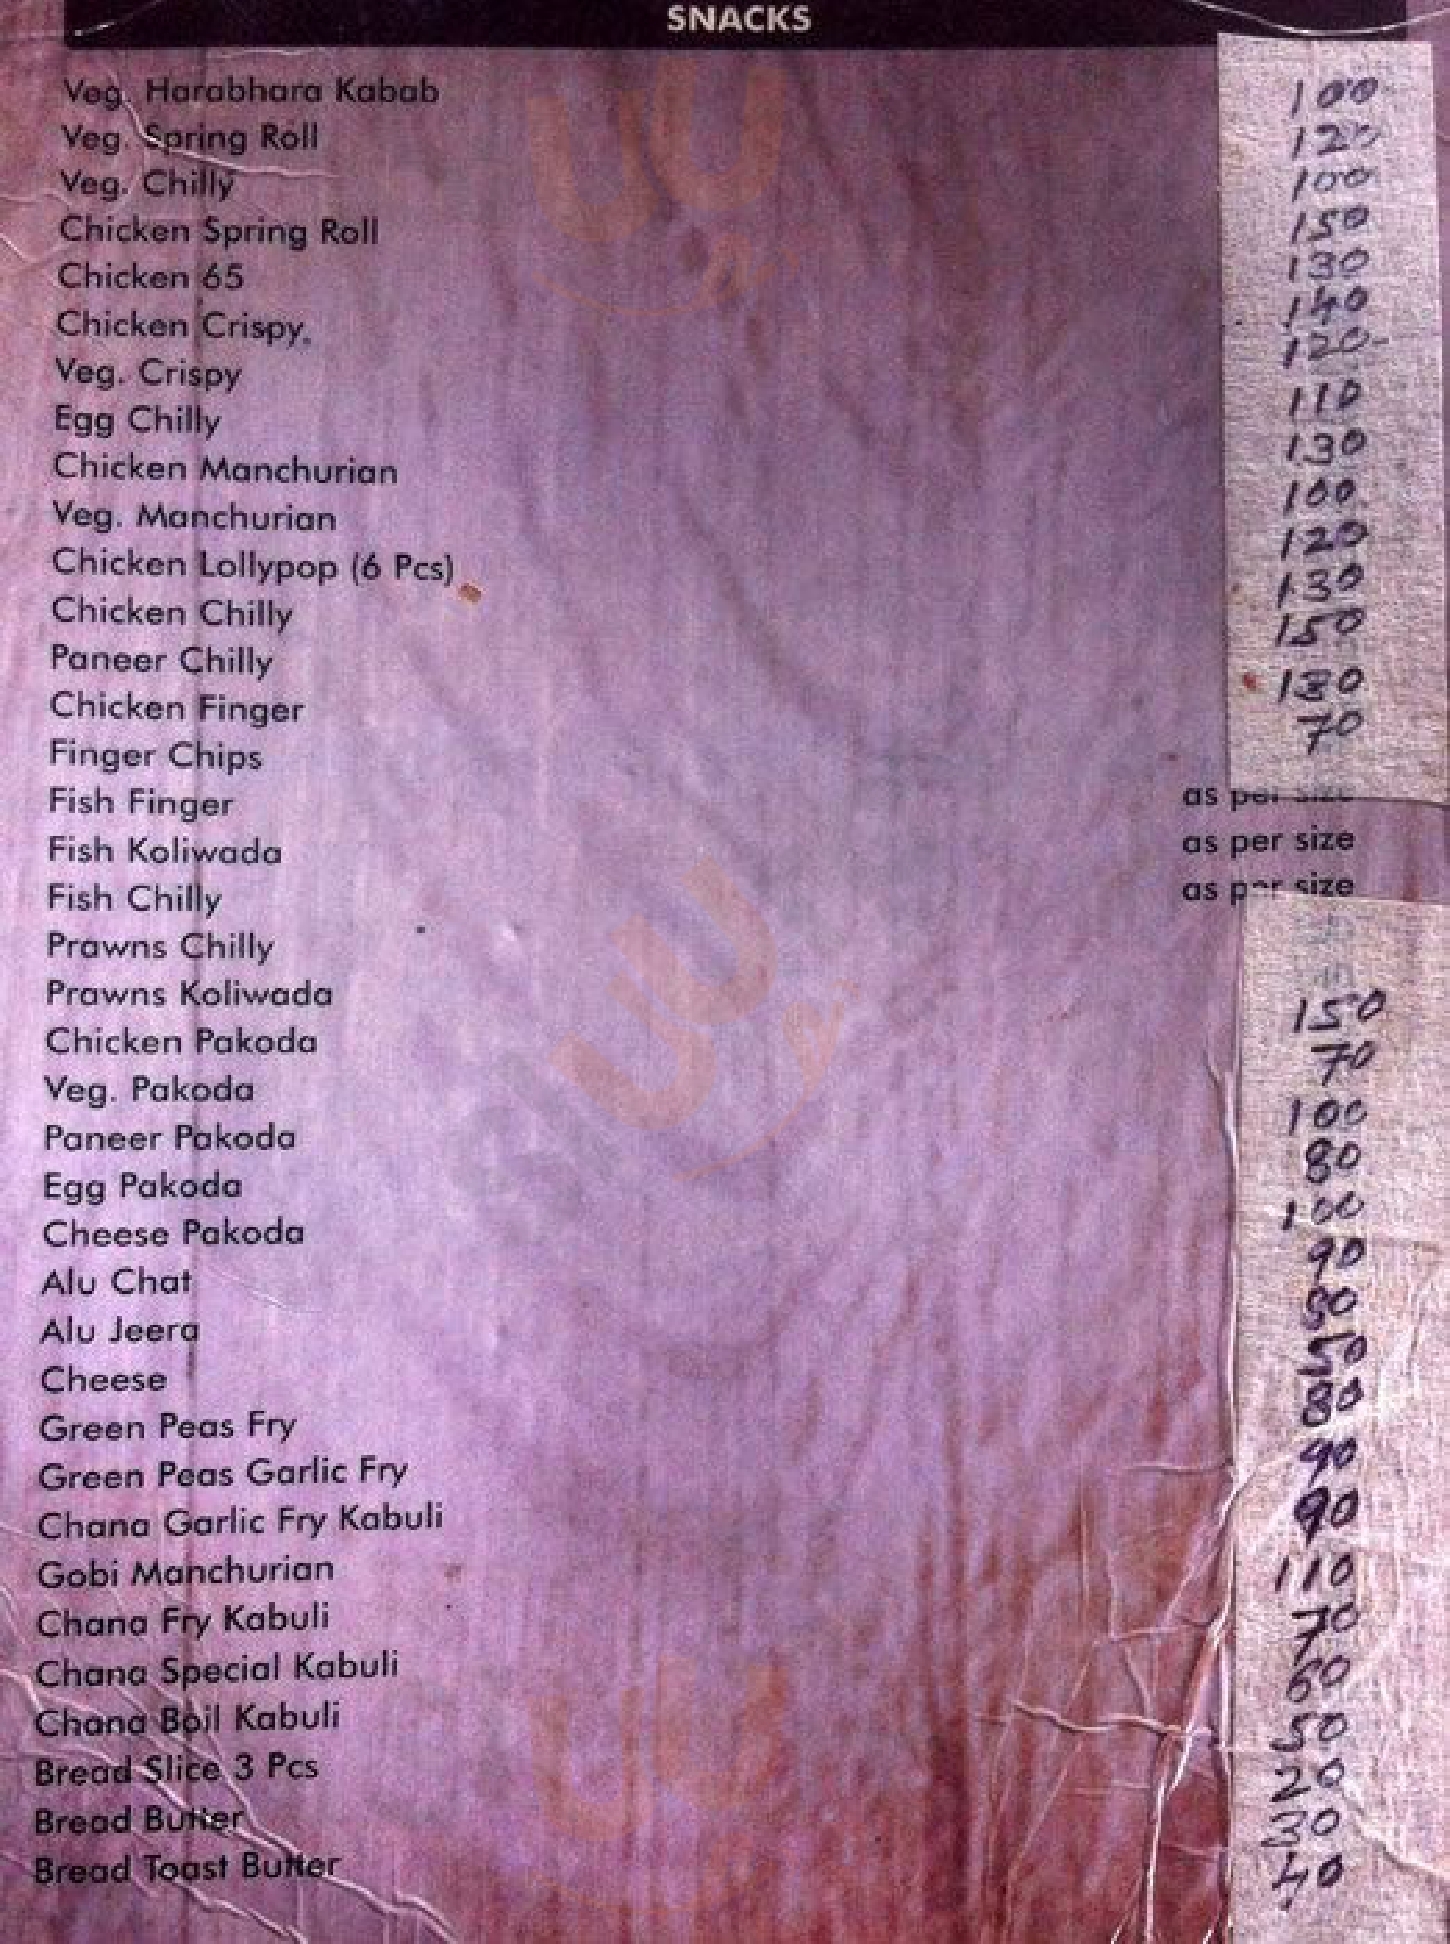 SNACKS
Veg. Harabhara Kabab 100
Veg. Spring Roll 120
Veg. Chilly 100
Chicken Spring Roll 150
Chicken 65 130
Chicken Crispy. 140
Veg. Crispy 120-
Egg Chilly 110
Chicken Manchurian 130
Veg. Manchurian 100
Chicken Lollypop (6 Pcs) 120
Chicken Chilly 130
Paneer Chilly 150
Chicken Finger 130
Finger Chips 70
Fish Finger as per size
Fish Koliwada as per size
Fish Chilly as per size
Prawns Chilly
Prawns Koliwada
Chicken Pakoda 150
Veg. Pakoda 70
Paneer Pakoda 100
Egg Pakoda 80
Cheese Pakoda 100
Alu Chat 90
Alu Jeera 80
Cheese 50
Green Peas Fry 80
Green Peas Garlic Fry 90
Chana Garlic Fry Kabuli 90
Gobi Manchurian 110
Chana Fry Kabuli 70
Chana Special Kabuli 60
Chana Boil Kabuli 50
Bread Slice 3 Pcs 20
Bread Butter 30
Bread Toast Butter 40